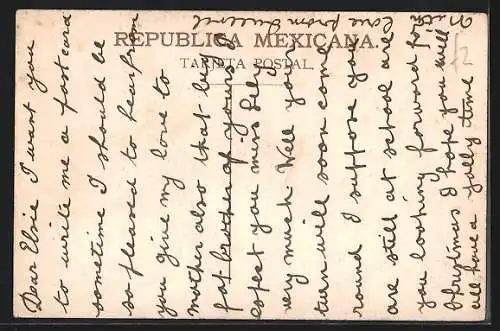 REPUBLICA MEXICANA.
TARJETA POSTAL.
Dear Elsie I want you
to write me a post card
sometime I should be
so pleased to hear from
you give my love to
mother also that big
fat brother of yours I
expect you miss
very much Well your
turn will soon come
round I suppose you
are still at school are
you looking forward for
Christmas I hope you will
all have a jolly time
With
love from